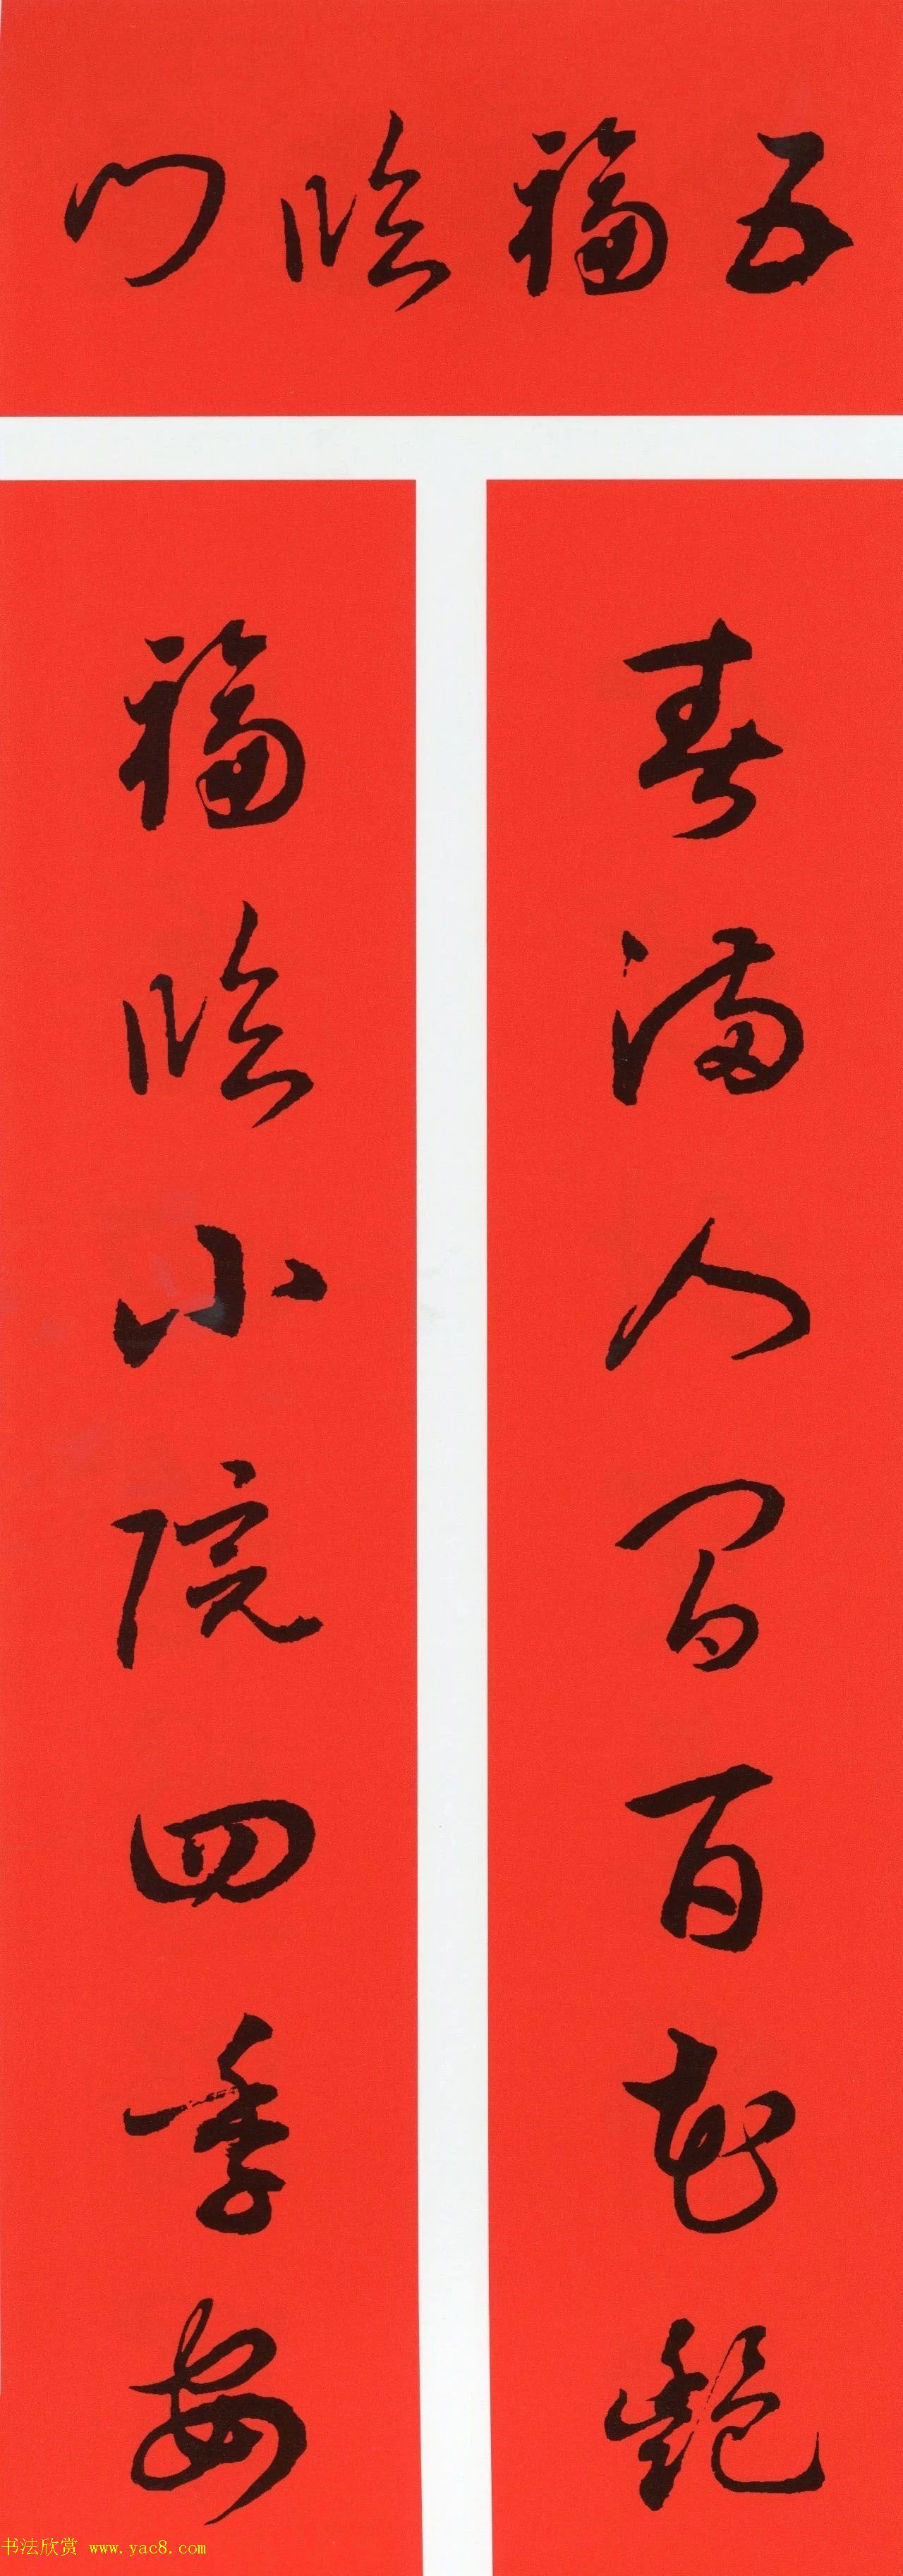 五福临门
春满人间百花艳
福临小院四季安
书法欣赏 www.yac8.com